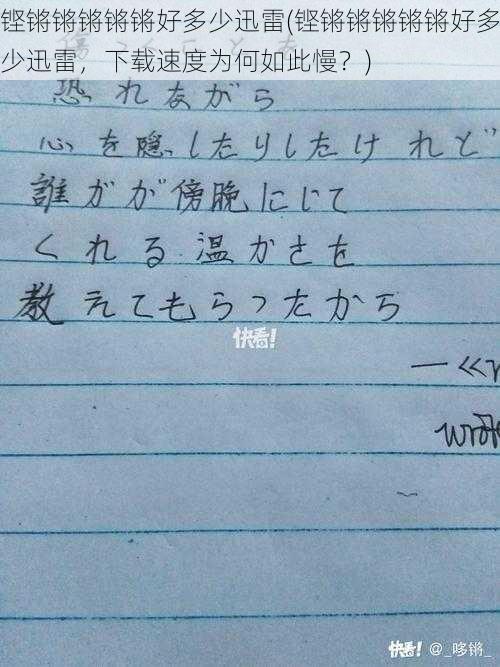 铿锵锵锵锵锵好多少迅雷(铿锵锵锵锵锵好多
少迅雷，下载速度为何如此慢？)
恐れながら
心を隠したりしたけれど
誰がが傍晩にじて
くれる温かさを
教えてもらったから
快看!
一《
快看! @_哆锵_